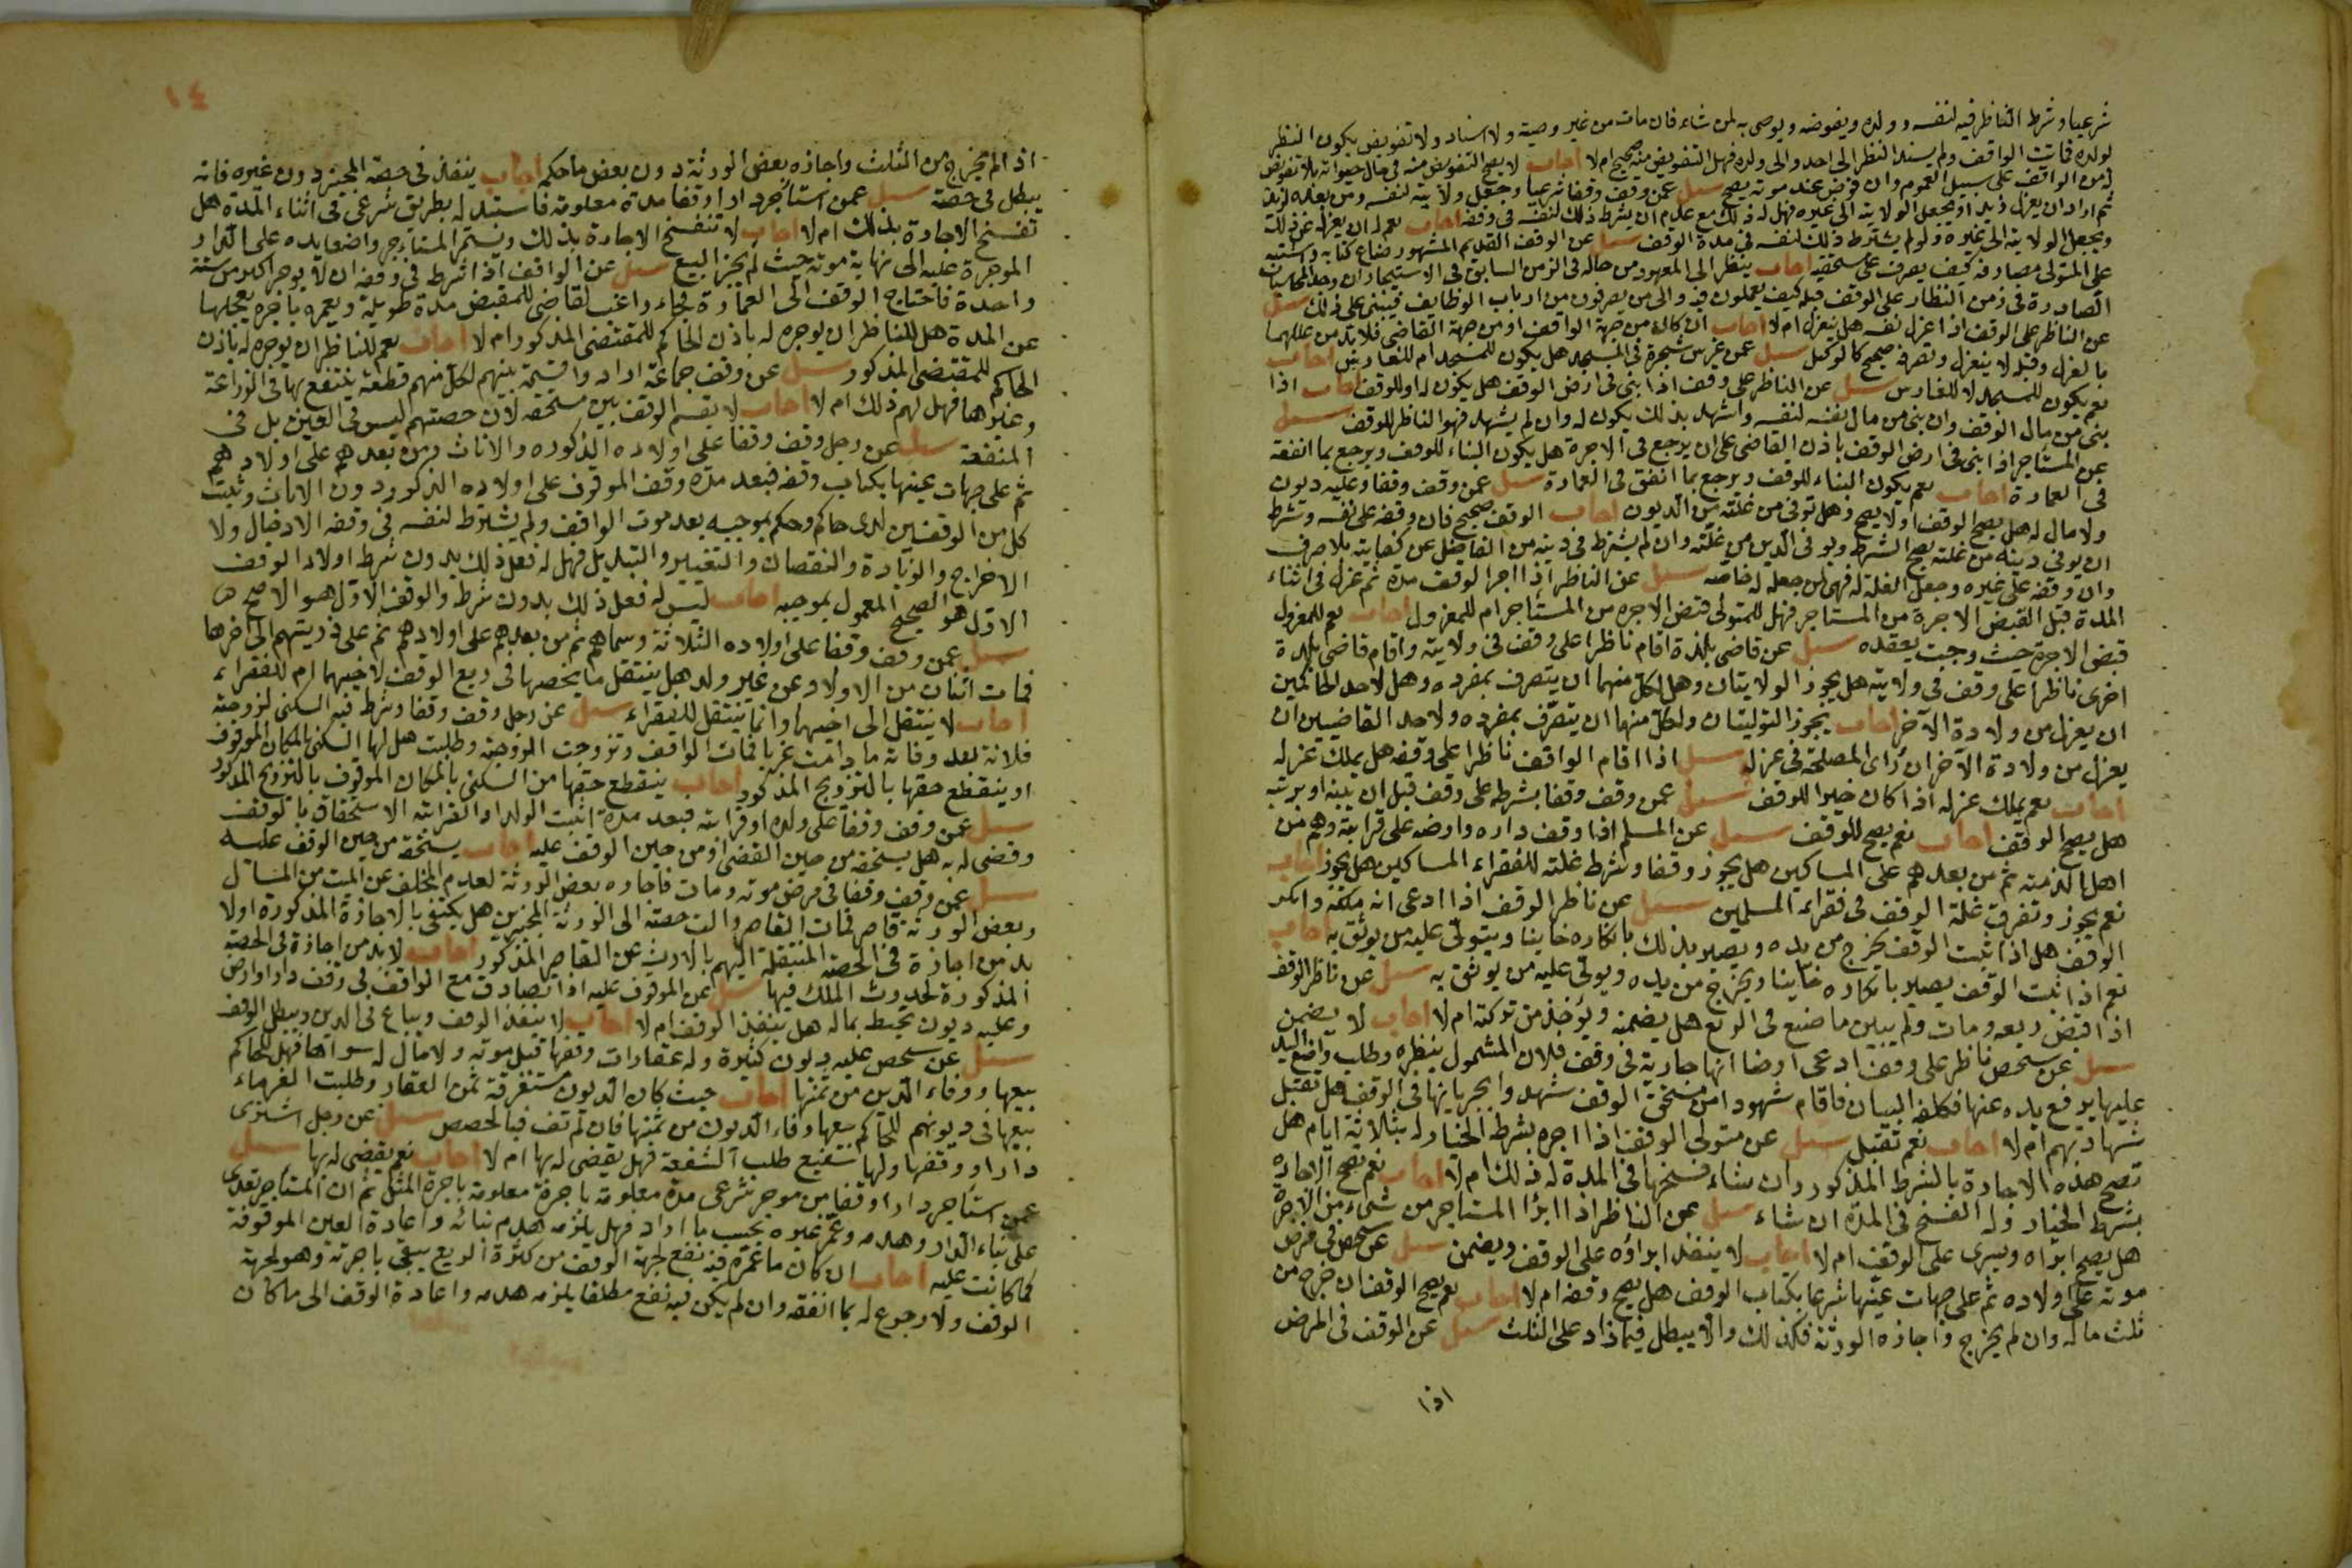 شرعيا وشرط الناظر فيه لنفسه وولده ويفوضه ويوصى به لمن شاء فان مات من غير وصية ولا اسناد ولا تفويض يكون النظر
لولده فمات الواقف ولم يسند النظر الى احد والى ولده فهل التفويض منه صحيح ام لا اجاب لا يصح التفويض منه فى حال حياته بلا تفويض
له من الواقف على سبيل العموم وان فوض عند موته يصح سيل عمن وقف وقفا شرعيا وجعل ولايته لنفسه ومن بعده لزيد
ثم اراد ان يعزل زيد او يجعل الولاية الى غيره فهل له ذلك مع عدم ان يشرط ذلك لنفسه فى وقفه اجاب نعم له ان يعزله عن ذلك
ويجعل الولاية الى غيره ولو لم يشترط ذلك لنفسه فى مدة الوقف سيل عن الوقف القديم المشهور ضاع كتابه واشتبه
على المتولى مصارفه كيف يصرف على مستحقيه اجاب ينظر الى المعهود من حاله فى الزمن السابق فى الاستيجار ان وجد المحاسبات
الصادرة فى زمن النظار على الوقف قبله كيف يعملون فيه والى من يصرفون من ارباب الوظايف فيبنى على ذلك سيل
عن الناظر على الوقف اذا عزل نفسه هل ينعزل ام لا اجاب ان كان من جهة الواقف او من جهة القاضى فلا بد من عللهما
ما لعزل وقبله لا ينعزل وتصرفه صحيح كالوكيل سيل عمن غرس شجرة فى المسجد هل يكون للمسجد ام للغارس اجاب
نعم يكون للمسجد لا للغارس سيل عن الناظر على وقف اذا بنى فى ارض الوقف هل يكون له او للوقف اجاب اذا
بنى من مال الوقف وان بنى من مال نفسه لنفسه واشهد بذلك يكون له وان لم يشهد فهو الناظر للوقف سيل
عن المستاجر اذا بنى فى ارض الوقف باذن القاضى على ان يرجع فى الاجرة هل يكون البناء للوقف ويرجع بما انفقه
فى العمارة اجاب نعم يكون البناء للوقف ويرجع بما انفق فى العمارة سيل عمن وقف وقفا وعليه ديون
ولا مال له هل يصح الوقف اولا يصح وهل توفى من غلته من الديون اجاب الوقف صحيح فان وقفه على نفسه وشرط
ان يوفى دينه من غلته يصح الشرط ويوفى الدين من غلته وان لم يشترط فى دينه من الفاضل عن كفايته بلا صرف
وان وقفه على غيره وجعل الغلة له فهى لمن جعله له خاصه سيل عن الناظر اذا اجر الوقف مدة ثم عزل فى اثناء
المدة قبل القبض الاجرة من المستاجر فهل للمتولى قبض الاجره من المستأجر ام للمعزول اجاب نعم للمعزول
قبض الاجرة حيث وجبت بعقده سيل عن قاضى بلدة اقام ناظرا على وقف فى ولايته واقام قاضى بلدة
اخرى ناظرا على وقف فى ولايته هل يجوز الولايتان وهل لكل منهما ان يتصرف بمفرده وهل لاحد الحاكمين
ان يعزل من ولاده الآخر اجاب يجوز التوليتان ولكل منهما ان يتصرف بمفرده ولاحد القاضيين ان
يعزل من ولاده الآخر ان راى المصلحة فى عزله سيل اذا اقام الواقف ناظرا على وقفه هل يملك عزله
اجاب نعم يملك عزله اذا كان خيرا للوقف سيل عمن وقف وقفا بشرطه على وقف قبل ان يبنه او يرتبه
هل يصح الوقف اجاب نعم يصح للوقف سيل عن المسلم اذا وقف داره وارضه على قرابته وهم من
اهل الذمة ثم من بعدهم على المساكين هل يجوز وقفا وشرط غلته للفقراء المساكين هل يجوز اجاب
نعم يجوز وتفرق غلة الوقف فى فقراء المسلمين سيل عن ناظر الوقف اذا ادعى انه ملكه وانكر
الوقف هل اذا ثبت الوقف يخرج من يده ويصير بذلك بانكاره خاينا ويتولى عليه من يوثق به اجاب
نعم اذا ثبت الوقف يصير بانكاره خاينا ويخرج من يده ويولى عليه من يوثق به سيل عن ناظر الوقف
اذا قبض ريعه ومات ولم يبين ما صنع فى الريع هل يضمنه ويؤخذ من تركته ام لا اجاب لا يضمن
سيل عن شخص ناظر على وقف ادعى ارضا انها جارية فى وقف فلان المشمول بنظره وطلب واضع اليد
عليها برفع يده عنها فكلفه البيان فاقام شهودا من مستحقى الوقف شهدوا بجريانها فى الوقف هل تقبل
شهادتهم ام لا اجاب نعم تقبل سيل عن متولى الوقف اذا اجره بشرط الخيار له بثلاثة ايام هل
تصح هذه الاجارة بالشرط المذكور وان شاء فسخها فى المدة له ذلك ام لا اجاب نعم تصح الاجاره
بشرط الخيار وله الفسخ فى المدة ان شاء سيل عن الناظر اذا ابرأ المستاجر من شىء من الاجرة
هل يصح ابراه ويسرى على الوقف ام لا اجاب لا ينفذ ابراؤه على الوقف ويضمن سيل عن شخص فى مرض
موته على اولاده ثم على جهات عينها شرعا بكتاب الوقف هل يصح وقفه ام لا اجاب نعم يصح الوقف ان خرج من
ثلث ماله وان لم يخرج واجازه الورثة فكذلك والا يبطل فيما زاد على الثلث سيل عن الوقف فى المرض
اذا
١٤
اذا لم يخرج من الثلث واجازه بعض الورثة دون بعض ما حكمه اجاب ينفذ فى حصة المجيز دون غيره فانه
يبطل فى حصته سيل عمن استأجر دارا وقفا مدة معلومة فاستبدله بطريق شرعى فى اثناء المدة هل
تفسخ الاجارة بذلك ام لا اجاب لا تنفسخ الاجارة بذلك ويستمر المستاجر واضعا يده على الدار
الموجرة عليه الى نهاية موته حيث لم يجز البيع سيل عن الواقف اذا شرط فى وقفه ان لا يوجر اكثر من سنة
واحدة فاحتاج الوقف الى العمارة فجاء راغب لقاضى للمقبض مدة طويلة ويعمره باجرة يعجلها
عن المدة هل للناظر ان يوجره له باذن الحاكم للمقتضى المذكور ام لا اجاب نعم للناظر ان يوجره له باذن
الحاكم للمقتضى المذكور سيل عن وقف جماعة اراد واقسمة بينهم لكل منهم قطعة ينتفع بها فى الزراعة
وغيرها فهل لهم ذلك ام لا اجاب لا يقسم الوقف بين مستحقه لان حصتهم ليس فى العين بل فى
المنفعة سيل عن رجل وقف وقفا على اولاده الذكوره والاناث ومن بعدهم على اولادهم
ثم على جهات عينها بكتاب وقفه فبعد مدة وقف الموقوف على اولاده الذكور دون الاناث وثبت
كل من الوقفين لدى حاكم وحكم بموجبه بعد موت الواقف ولم يشترط لنفسه فى وقفه الادخال ولا
الاخراج والزيادة والنقصان والتغيير والتبديل فهل له فعل ذلك بدون شرط اولاد الوقف
الاول هو الصحيح المعمول بموجبه اجاب ليس له فعل ذلك بدون شرط والوقف الاول هو الاصح
سيل عمن وقف وقفا على اولاده الثلاثة وسماهم ثم من بعدهم على اولادهم ثم على ذريتهم الى اخرها
فمات اثنان من الاولاد عن غير ولد هل ينتقل ما يخصها فى ريع الوقف لاخيهما ام للفقراء
اجاب لا ينتقل الى اخيهما وانما ينتقل للفقراء سيل عن رجل وقف وقفا وشرط فيه السكنى لزوجته
فلانة بعد وفاته ما دامت عزبا فمات الواقف وتزوجت الزوجة وطلبت هل لها السكنى بالمكان الموقوف
او ينقطع حقها بالتزويج المذكور اجاب ينقطع حقها من السكنى بالمكان الموقوف بالتزويج المذكور
سيل عمن وقف وقفا على ولده او قرابته فبعد مدة اثبت الولد او القرابته الاستحقاق بالوقف
وقضى له به هل يستحقه من حين القضى او من حين الوقف عليه اجاب يستحقه من حين الوقف عليه
سيل عمن وقف وقفا فى مرض موته ومات فاجازه بعض الورثة لعدم المخلف عن الميت من المال
وبعض الورثة قاصر فمات القاصر والت حصته الى الورثة المجيزين هل يكتفى بالاجازة المذكورة اولا
بد من اجازة فى الحصة المنتقلة اليهم بالارث عن القاصر المذكور اجاب لا بد من اجازة فى الحصة
المذكورة لحدوث الملك فيها سيل عن الموقوف عليه اذا تصادق مع الواقف فى وقف دار او ارض
وعليه ديون تحيط بماله هل ينفذ الوقف ام لا اجاب لا ينفذ الوقف ويباع فى الدين ويبطل الوقف
سيل عن شخص عليه ديون كثيرة وله عقارات وقفها قبل موته ولا مال له سواها فهل للحاكم
بيعها ووفاء الدين من ثمنها اجاب حيث كان الديون مستغرقة ثمن العقار وطلبت الغرماء
بيعها فى ديونهم للحاكم بيعها وفاء الديون من ثمنها فان لم تف فبالحصص سيل عن رجل اشترى
دارا ووقفها ولها شفيع طلب الشفعة فهل يقضى له بها ام لا اجاب نعم يقضى له بها سيل
عمن استاجر دارا وقفا من موجر شرعى مدة معلومة باجرة معلومة باجرة المثل ثم ان المستاجر تعدى
على بناء الدار وهدمه وعمر غيره بحسب ما اراد فهل يلزمه هدم بنائه واعادة العين الموقوفة
كما كانت عليه اجاب ان كان ما عمره فيه نفع لجهة الوقف من كثرة الريع يبقى باجرته وهو لجهة
الوقف ولا رجوع له بما انفقه وان لم يكن فيه نفع مطلقا يلزمه هدمه واعادة الوقف الى ما كان